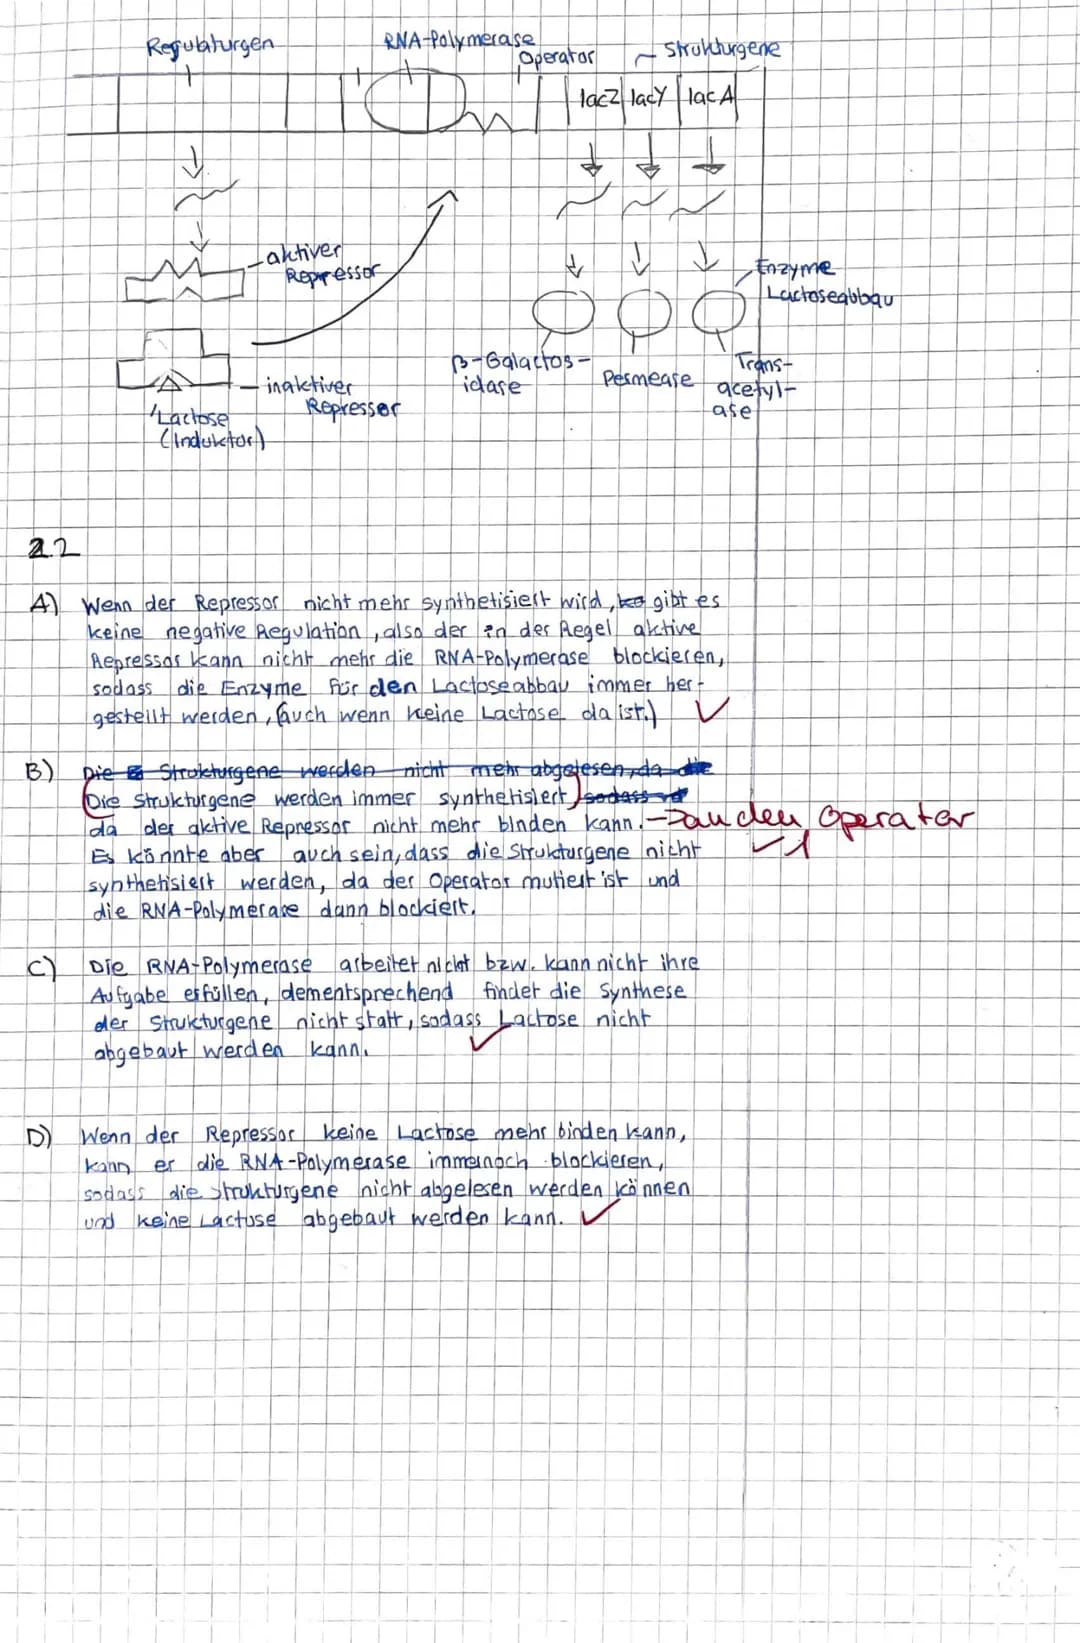 Regulaturgen
RNA-Polymerase
Operator
Strukturgene
lacZ lacY lacA
aktiver
Repressor
Enzyme
Lactoseabbau
β-Galactos-
idase
Pesmease
Trans-
acetyl-
ase
inaktiver
Repressor
Lactose
(Induktor)
2.2
A) Wenn der Repressor nicht mehr synthetisiert wird, gibt es
keine negative Regulation, also der in der Regel aktive
Repressor kann nicht mehr die RNA-Polymerase blockieren,
sodass die Enzyme für den Lactoseabbau immer her-
gestellt werden, (auch wenn keine Lactose da ist.) ✓
B) Die Strukturgene werden nicht mehr abgelesen, da die
(Die Strukturgene werden immer synthetisiert) sodass
da der aktive Repressor nicht mehr binden kann. → an den Operator
Es könnte aber auch sein, dass die Strukturgene nicht ✓
synthetisiert werden, da der Operator mutiert ist und
die RNA-Polymerase dann blockiert.
C) Die RNA-Polymerase arbeitet nicht bzw. kann nicht ihre
Aufgabe erfüllen, dementsprechend findet die Synthese
der Strukturgene nicht statt, sodass Lactose nicht
abgebaut werden kann. ✓
D) Wenn der Repressor keine Lactose mehr binden kann,
kann er die RNA-Polymerase immernoch blockieren,
sodass die Strukturgene nicht abgelesen werden können
und keine Lactose abgebaut werden kann. ✓